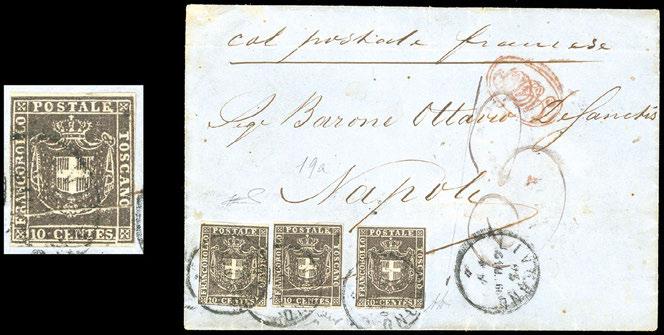 POSTALE
FRANCOBOLLO
TOSCANO
10 CENTES
col postale francese
Sigr Barone Ottavio DeSanctis
19a
Napoli
POSTALE
FRANCOBOLLO
TOSCANO
10 CENTES
POSTALE
FRANCOBOLLO
TOSCANO
10 CENTES
POSTALE
FRANCOBOLLO
TOSCANO
10 CENTES